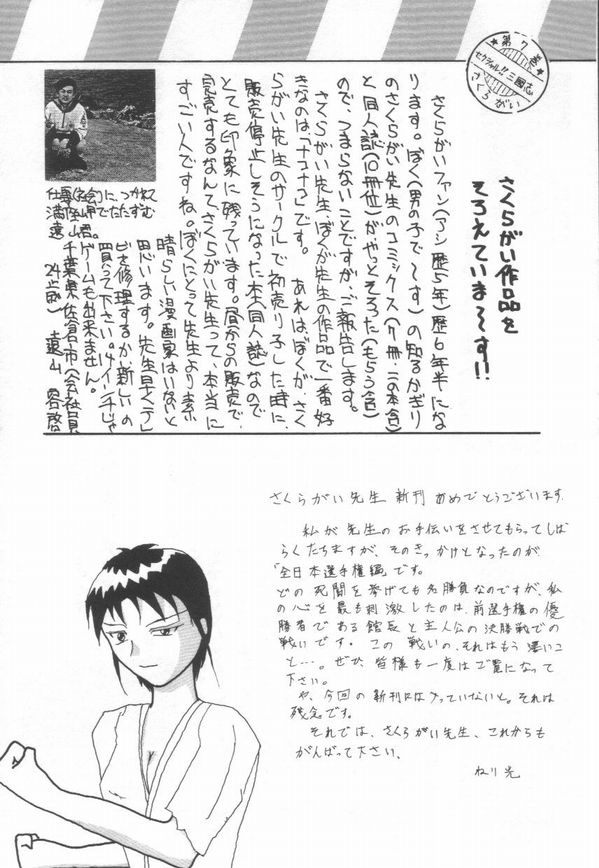 ★第7巻★
セクシャル!!三國志
さくらがい
さくらがい作品を
そろえていま〜す!!
さくらがいファン(アシ歴5年)歴6年半にな
ります。ぼく(男の子で〜す)の知るかぎり
のさくらがい先生のコミックス(7冊・二の本含)
と同人誌(10冊位)がやっとそろた(もらう含)
ので、つまらないことですが、ご報告します。
さくらがい先生、ぼくが先生の作品で一番好
きなのは、「ナコナコ」です。あれはぼくが、さく
らがい先生のサークルで初売り子した時に、
販売停止しそうになった本(同人誌)なので
とても印象に残っています。昼からの販売で、
完売するなんて、さくらがい先生って、本当に
すごい人ですね。ぼくにとって先生より素
晴らしい漫画家はいないと
思います。先生早くテレ
ビを修理するかい新しいの
買って下さい。14インチじゃ
ゲームも出来ません。
千葉県佐倉市(会社員
24歳) 遠山
仕事(会社)に、つかれて
満
遠山君。
さくらがい先生 新刊 おめでとうございます
私が先生のお手伝いをさせてもらってしば
らくたちますが、そのきっかけとなったのが
「全日本選手権編」です。
どの死闘を挙げても名勝負なのですが、私
の心を最も刺激したのは、前選手権の優
勝者である館長と主人公の決勝戦での
戦いです。この戦いの、それはもう凄いこ
と…。ぜひ皆様も一度はご覧になって
下さい。
や、今回の新刊には入っていないと。それは
残念です。
それでは、さくらがい先生、これからも
がんばって下さい。
ねり光